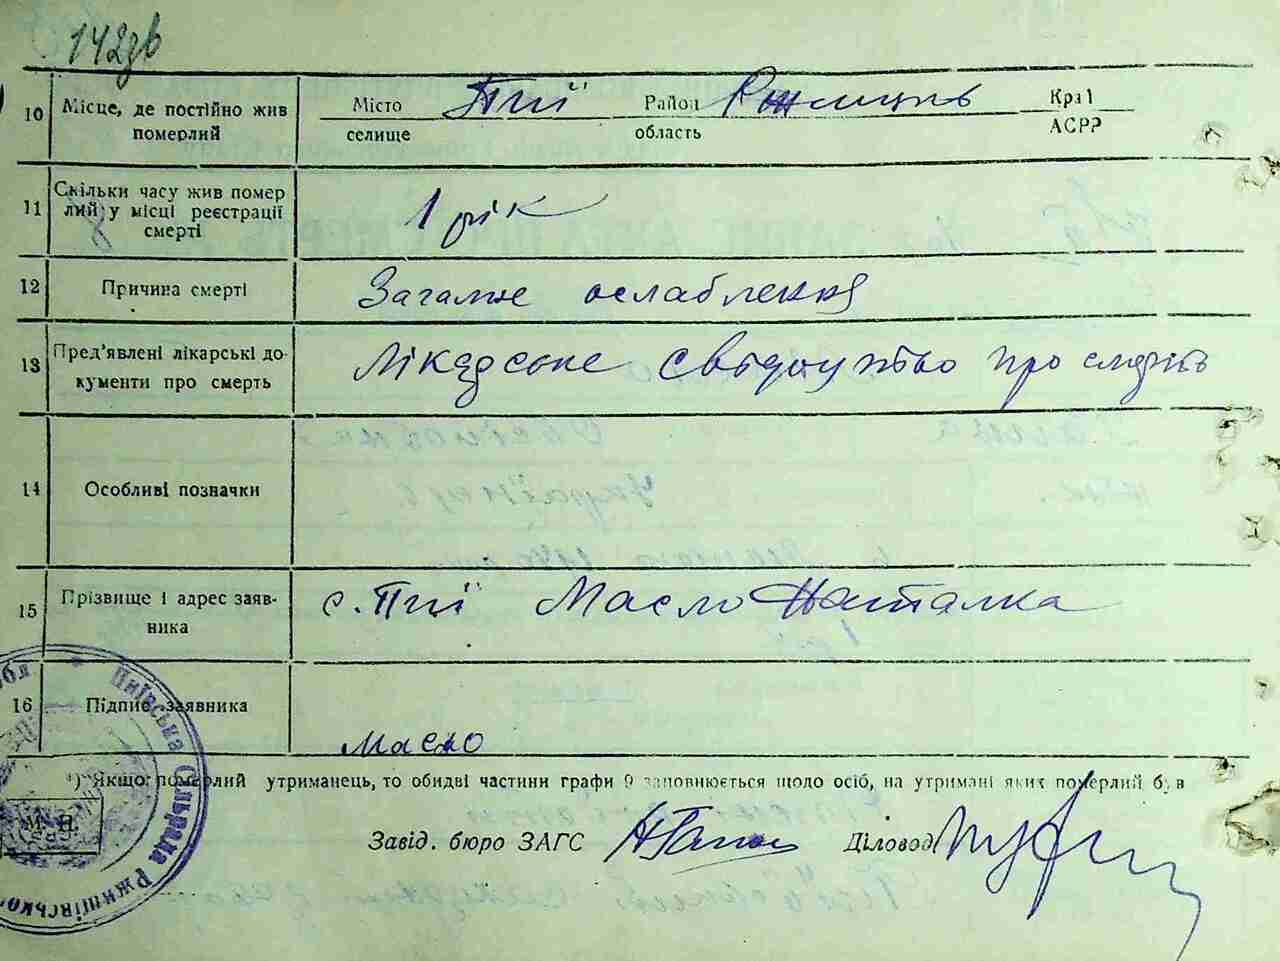 142зв
10 Місце, де постійно жив померлий Місто селище Пії Район область Ржищів Краї АСРР
11 Скільки часу жив померлий у місці реєстрації смерті 1 рік
12 Причина смерті Загальне ослаблення
13 Пред'явлені лікарські документи про смерть Лікарське свідоцтво про смерть
14 Особливі позначки
15 Прізвище і адрес заявника с. Пії Масло Наталка
16 Підпис заявника Масло
¹) Якщо померлий утриманець, то обидві частини графи 9 заповнюється щодо осіб, на утримані яких померлий був
Завід. бюро ЗАГС Діловод
М. П.
Пиївська Сільрада Ржищівсько